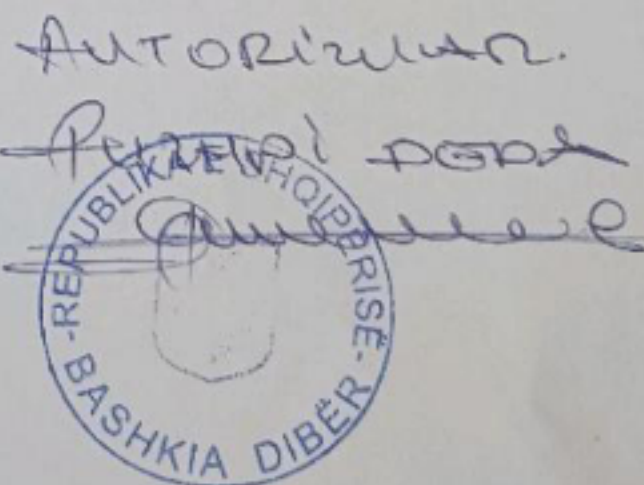 AUTORIZUAR.
DGDA
-REPUBLIKA E SHQIPËRISË-
BASHKIA DIBËR